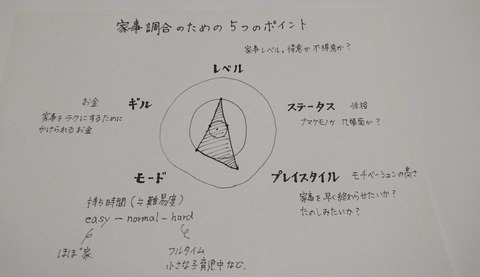 家事調合のための5つのポイント
家事レベル。得意か不得意か?
レベル
お金
ギル
家事をラクにするために
かけられるお金
ステータス 性格
ナマケモノか 几帳面か?
モード
持ち時間(≒難易度)
easy ― normal ― hard
ほぼ家
フルタイム
小さな子育児中など。
プレイスタイル モチベーションの高さ
家事を早く終わらせたいか?
たのしみたいか?